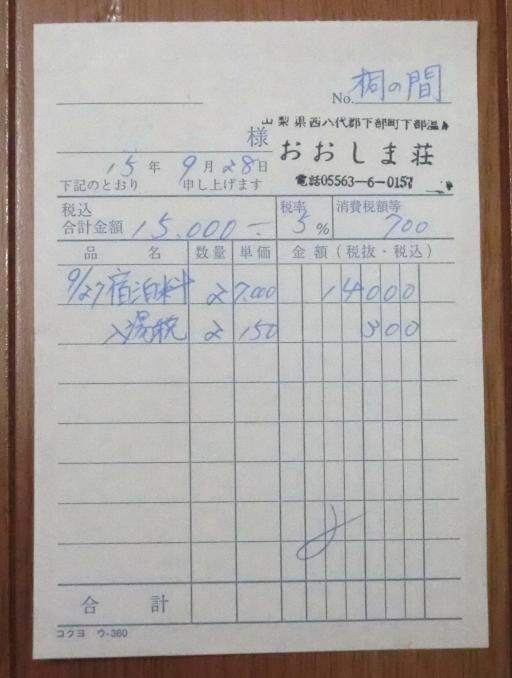 No. 桐の間
山梨県西八代郡下部町下部温
様
おおしま荘
15年 9月28日
電話05563-6-0157
下記のとおり 申し上げます
税込 合計金額 15.000- 税率 5% 消費税額等 700
品名 数量 単価 金額(税抜・税込)
9/27 宿泊料 2 7.000 14000
入湯税 2 150 300
合計
コクヨ ウ-360